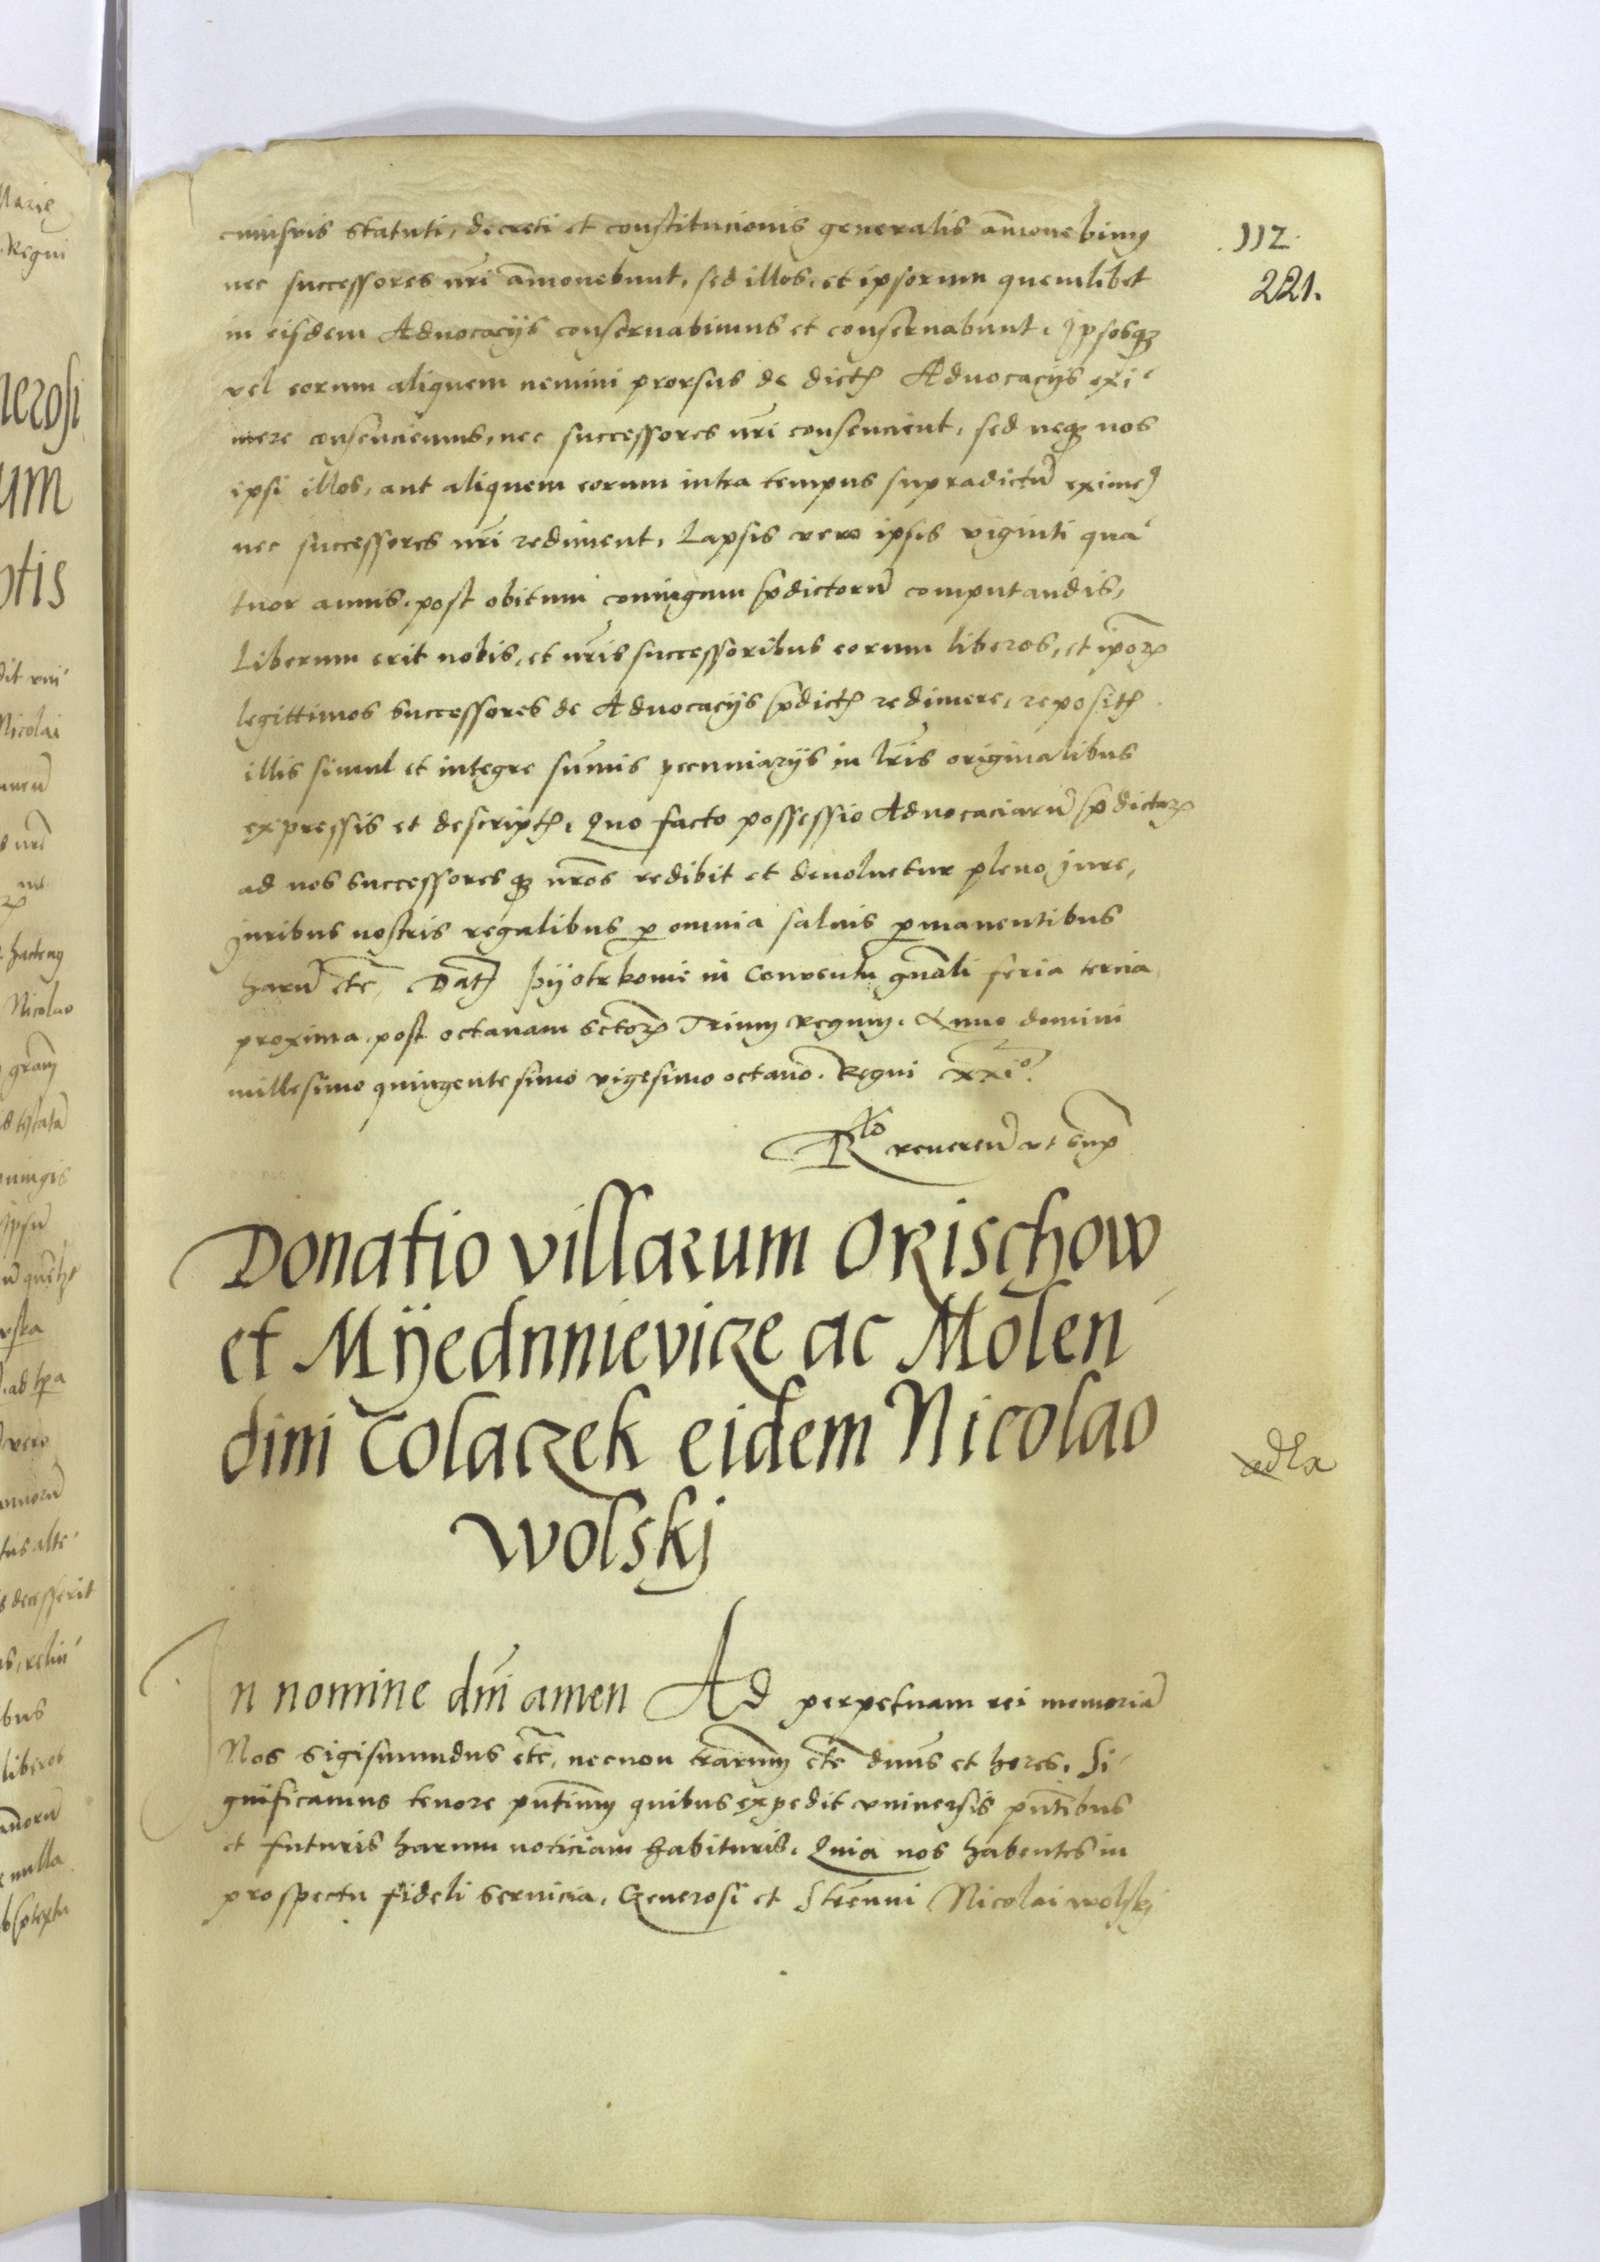 112.
221.
cuiusvis statuti, decreti et constitucionis generalis am̄onebimꝰ
nec successores nr̄i am̄onebunt, sed illos, et ipsorum quemlibet
in eisdem Aduocacijs conseruabimus et conseruabunt, Ipsosqꝫ
vel eorum aliquem nemini prorsus de dictꝭ Aduocacijs exi-
mere consenciemus, nec successores nr̄i consencient, sed neqꝫ nos
ipsi illos, aut aliquem eorum intra tempus supradictū eximeꝭ
nec successores nr̄i rediment, Lapsis vero ipsis viginti qua-
tuor annis, post obitum coniugum p̄dictorū computandis,
Liberum erit nobis, et nr̄is successoribus eorum liberos, et ip̄oꝝ
legittimos successores de Aduocacijs p̄dictꝭ redimere, repositꝭ
illis simul et integre sum̄is pecuniarijs in lr̄is originalibus
expressis et descriptꝭ, Quo facto possessio Aduocaciarū p̄dictaꝝ
ad nos successoresqꝫ nr̄os redibit et deuoluetur pleno jure,
Juribus nostris regalibus ꝑ omnia saluis ꝑmanentibus
harū etc̄, Datꝭ pijotrkouie in Conuentu gn̄ali feria tercia
proxima, post octauam sctōꝝ Trium regum, Anno domini
millesimo quingentesimo vigesimo octauo. Regni xxiº.
Rlō reuerenꝭ vt supᵃ
Donatio villarum Orischow
et Mÿednnievice ac Molen-
dini Colaczek eidem Nicolao
wolskj
In nomine dn̄i amen Ad perpetuam rei memoriā
Nos Sigismundus etc̄, necnon trārum etc̄ dnn̄s et heres, Si-
gnificamus tenore pn̄tium quibus expedit vniuersis pn̄tibus
et futuris harum noticiam habituris, Quia nos habentes in
prospectu fideli seruicia, Generosi et Strennui Nicolai wolskj